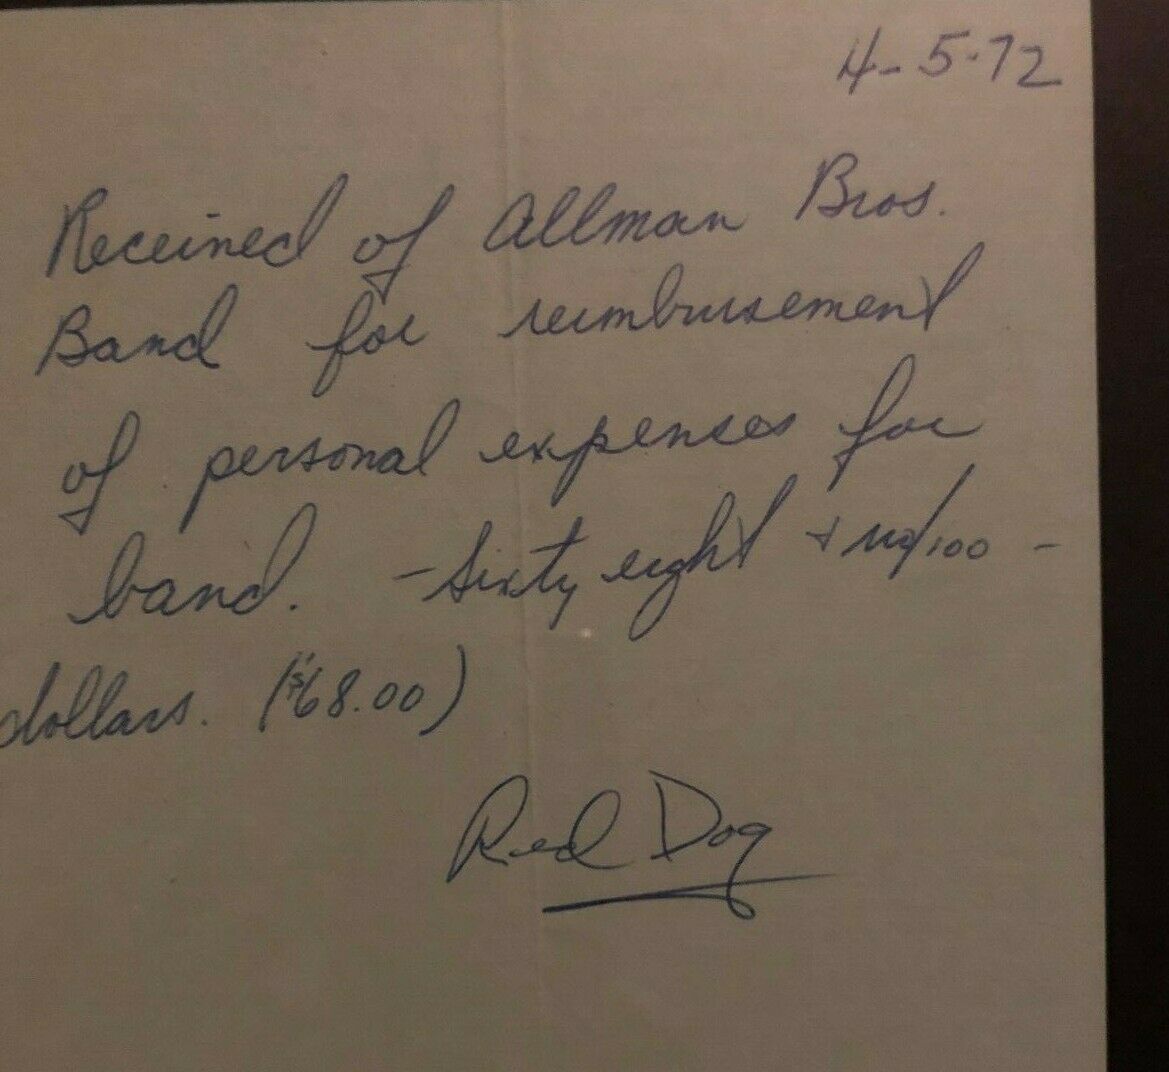 4-5-72
Received of Allman Bros.
Band for reimbursement
of personal expenses for
band. - Sixty eight + no/100 -
dollars. ($68.00)
Red Dog